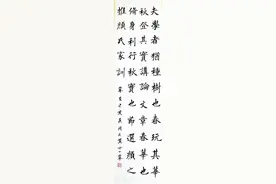 夫學者猶種樹也春玩其華
秋登其實講論文章春華也
脩身利行秋實也節選顏之
推顏氏家訓